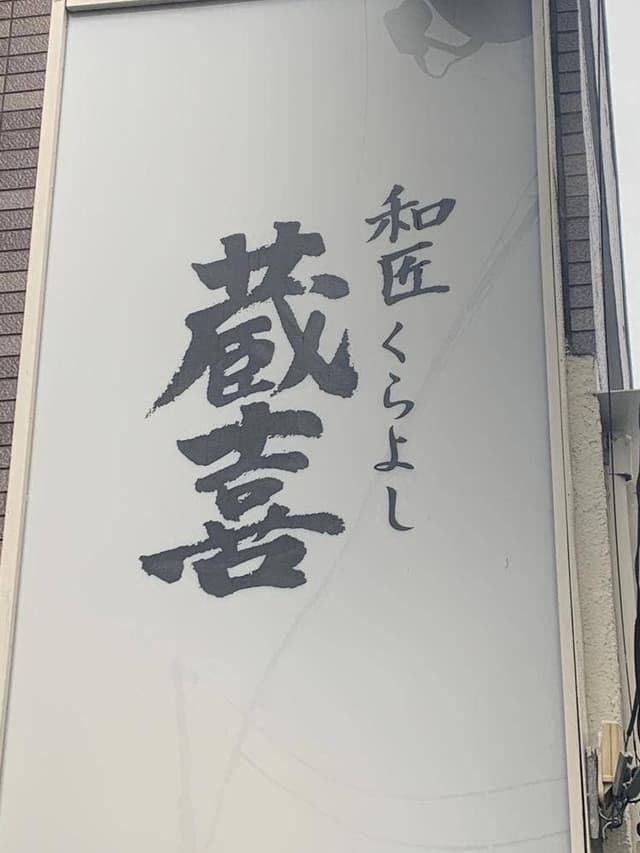 和匠くらよし
蔵喜